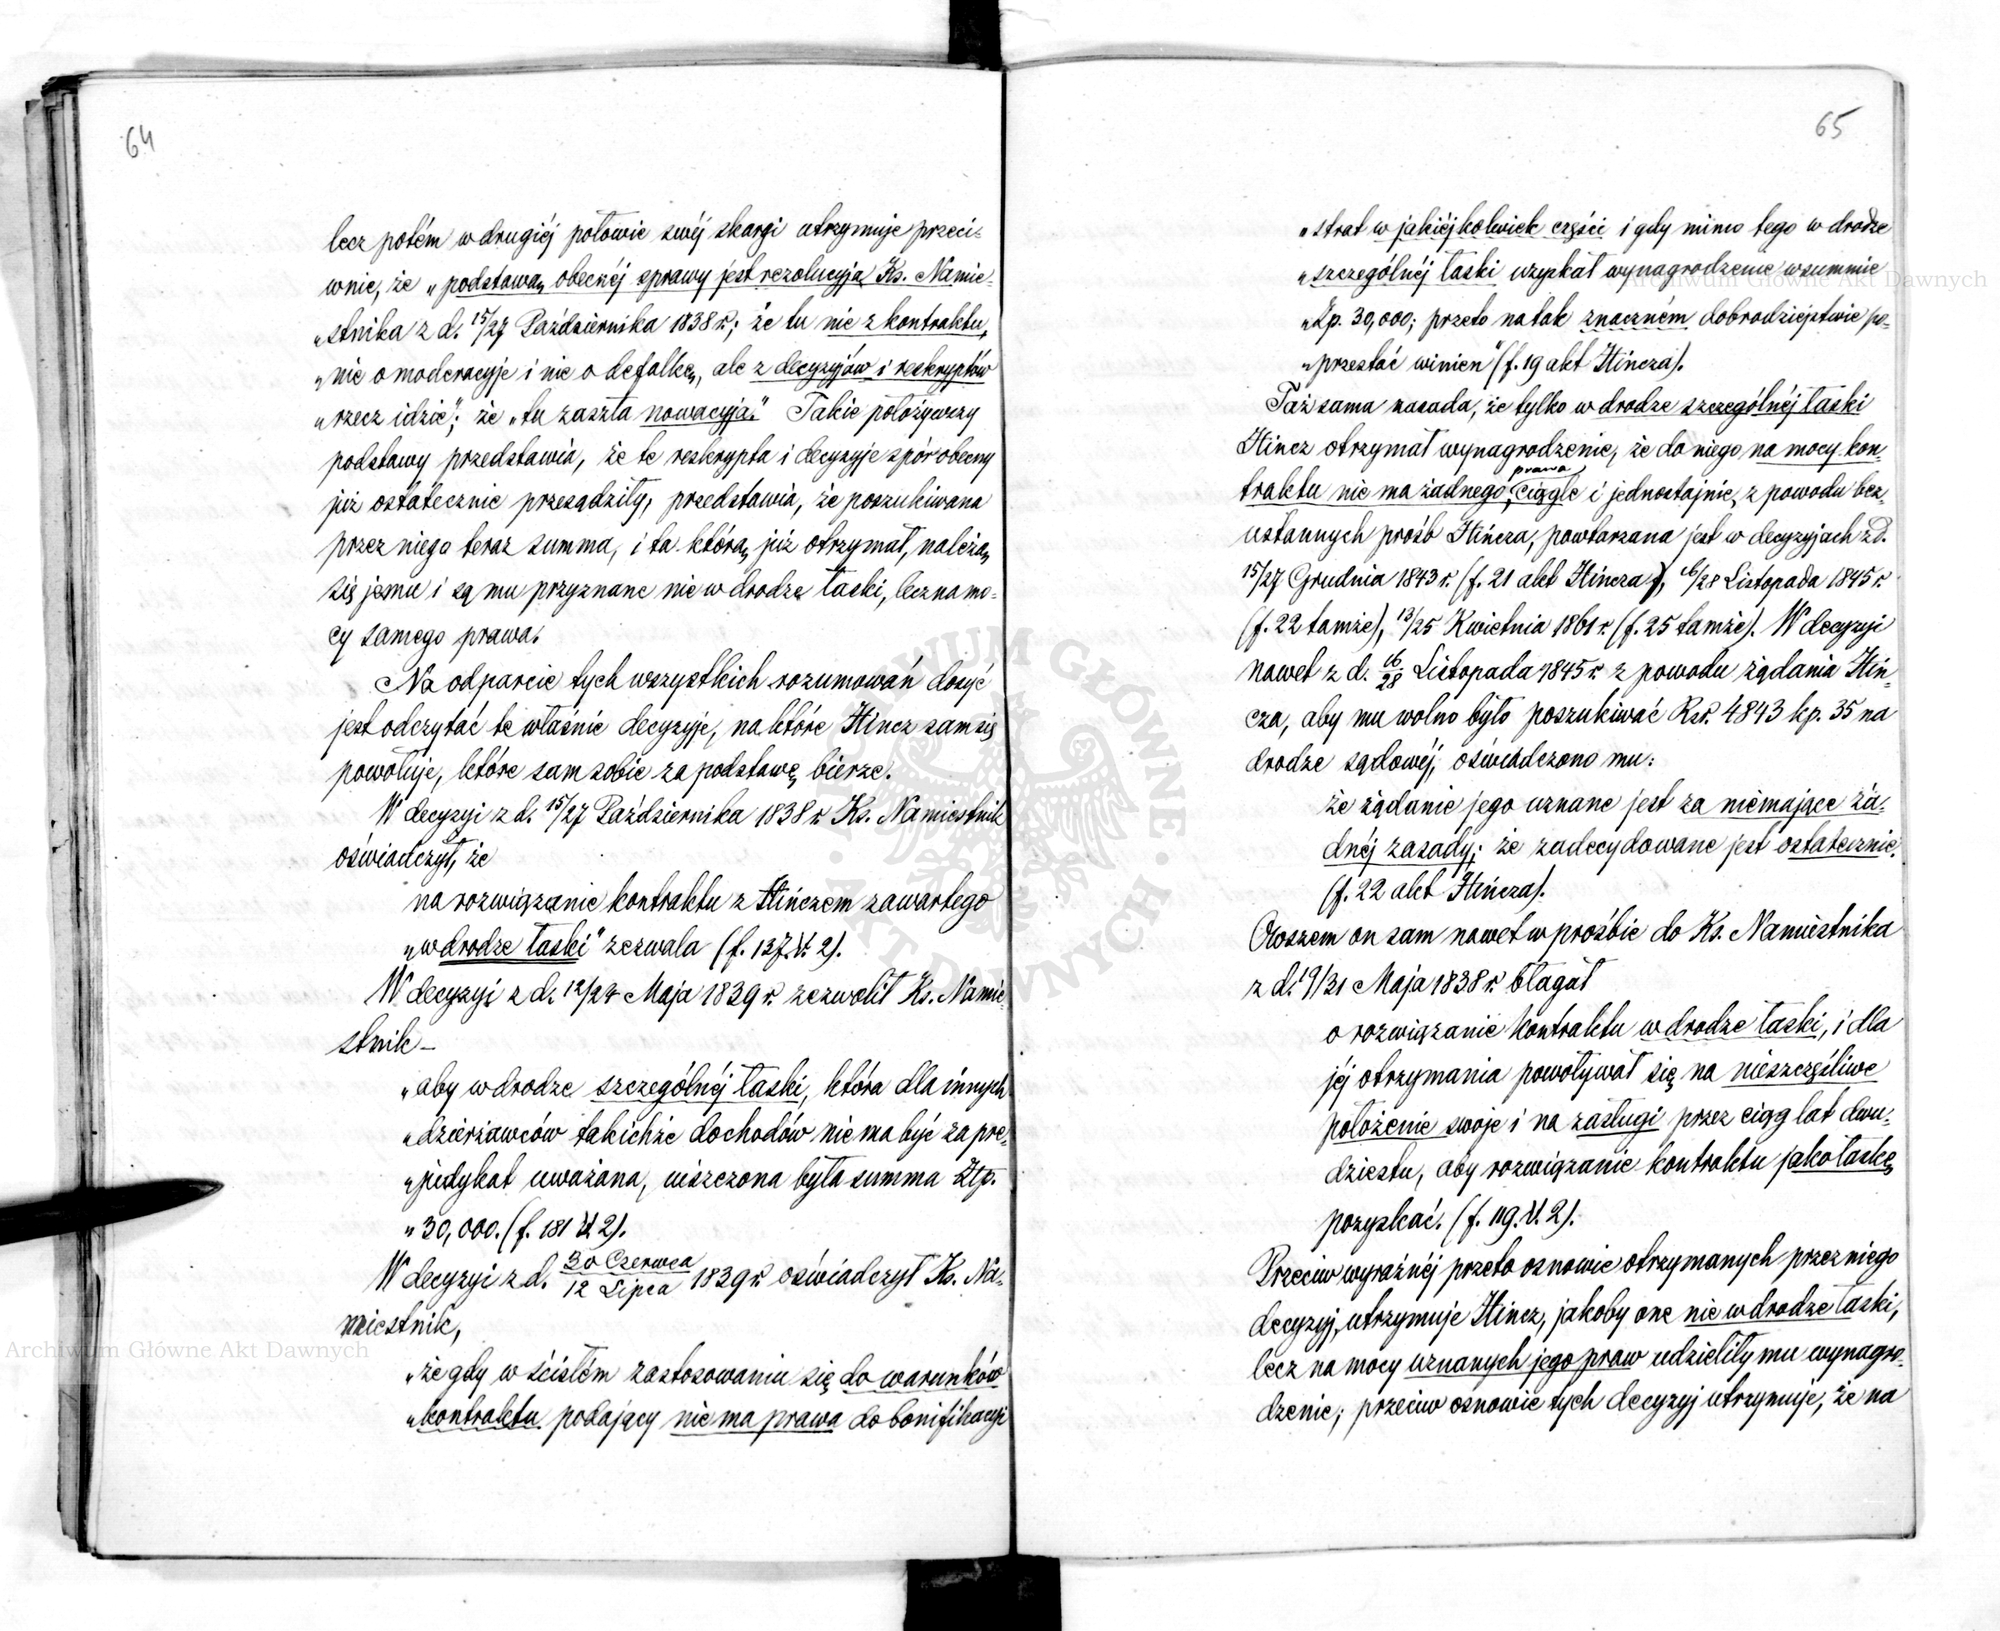 64
lecz potém w drugiéj połowie swéj skargi utrzymuje przeci-
wnie, że „podstawą obecnéj sprawy jest rezolucyja Ks. Namie-
„stnika z d. 15/27 Października 1838 r.; że tu nie z kontraktu,
„nie o moderacyje i nie o defalkę, ale z decyzyjów i reskryptów
„rzecz idzie”; że „tu zaszła nowacyja.” Takie położywszy
podstawy przedstawia, że te reskrypta i decyzyje spór obecny
już ostatecznie przesądziły, przedstawia, że poszukiwana
przez niego teraz summa, i ta którą już otrzymał, należą
się jemu i są mu przyznane nie w drodze łaski, lecz na mo-
cy samego prawa.
Na odparcie tych wszystkich rozumowań dosyć
jest odczytać te właśnie decyzyje, na które Hincz sam się
powołuje, które sam sobie za podstawę bierze.
W decyzyi z d. 15/27 Października 1838 r. Ks. Namiestnik
oświadczył, że
na rozwiązanie kontraktu z Hińczem zawartego
„w drodze łaski” zezwala (f. 137. V. 2).
W decyzyi z d. 12/24 Maja 1839 r. zezwolił Ks. Namie-
stnik –
„aby w drodze szczególnéj łaski, która dla innych
„dzierżawców takichże dochodów nie ma być za pre-
„judykat uważana, uiszczona była summa Złp.
„30,000. (f. 181 V. 2).
W decyzyi z d. 30 Czerwca/12 Lipca 1839 r. oświadczył Ks. Na-
miestnik,
„że gdy w ścisłém zastosowaniu się do warunków
„kontraktu podający nie ma prawa do bonifikacyi
65
„strat w jakiéjkolwiek części i gdy mimo tego w drodze
„szczególnéj łaski uzyskał wynagrodzenie w summie
„Złp. 30,000; przeto na tak znaczném dobrodziejstwie po-
„przestać winien” (f. 19 akt Hincza).
Taż sama zasada, że tylko w drodze szczególnéj łaski
Hincz otrzymał wynagrodzenie, że do niego na mocy kon-
prawa
traktu nie ma żadnego, ciągle i jednostajnie, z powodu bez-
ustannych prośb Hińcza, powtarzana jest w decyzyjach z d.
15/27 Grudnia 1843 r. (f. 21 akt Hincza), 16/28 Listopada 1845 r.
(f. 22 tamże), 13/25 Kwietnia 1861 r. (f. 25 tamże). W decyzyi
nawet z d. 16/28 Listopada 1845 r. z powodu żądania Hiń-
cza, aby mu wolno było poszukiwać Rsr. 4843 kp. 35 na
drodze sądowéj, oświadczono mu:
że żądanie jego uznane jest za niemające ża-
dnéj zasady; że zadecydowane jest ostatecznie.
(f. 22 akt Hińcza).
Owszem on sam nawet w prośbie do Ks. Namiestnika
z d. 19/31 Maja 1838 r. błagał
o rozwiązanie kontraktu w drodze łaski, i dla
jéj otrzymania powoływał się na nieszczęśliwe
położenie swoje i na zasługi przez ciąg lat dwu-
dziestu, aby rozwiązanie kontraktu jako łaskę
pozyskać. (f. 119. V. 2).
Przeciw wyraźnéj przeto osnowie otrzymanych przez niego
decyzyj, utrzymuje Hincz, jakoby one nie w drodze łaski,
lecz na mocy uznanych jego praw udzieliły mu wynagro-
dzenie; przeciw osnowie tych decyzyj utrzymuje, że na
Archiwum Główne Akt Dawnych
Archiwum Główne Akt Dawnych
ARCHIWUM GŁÓWNE · AKT DAWNYCH ·